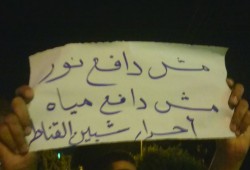 مش دافع نور
مش دافع مياه
أحرار شبين القناطر